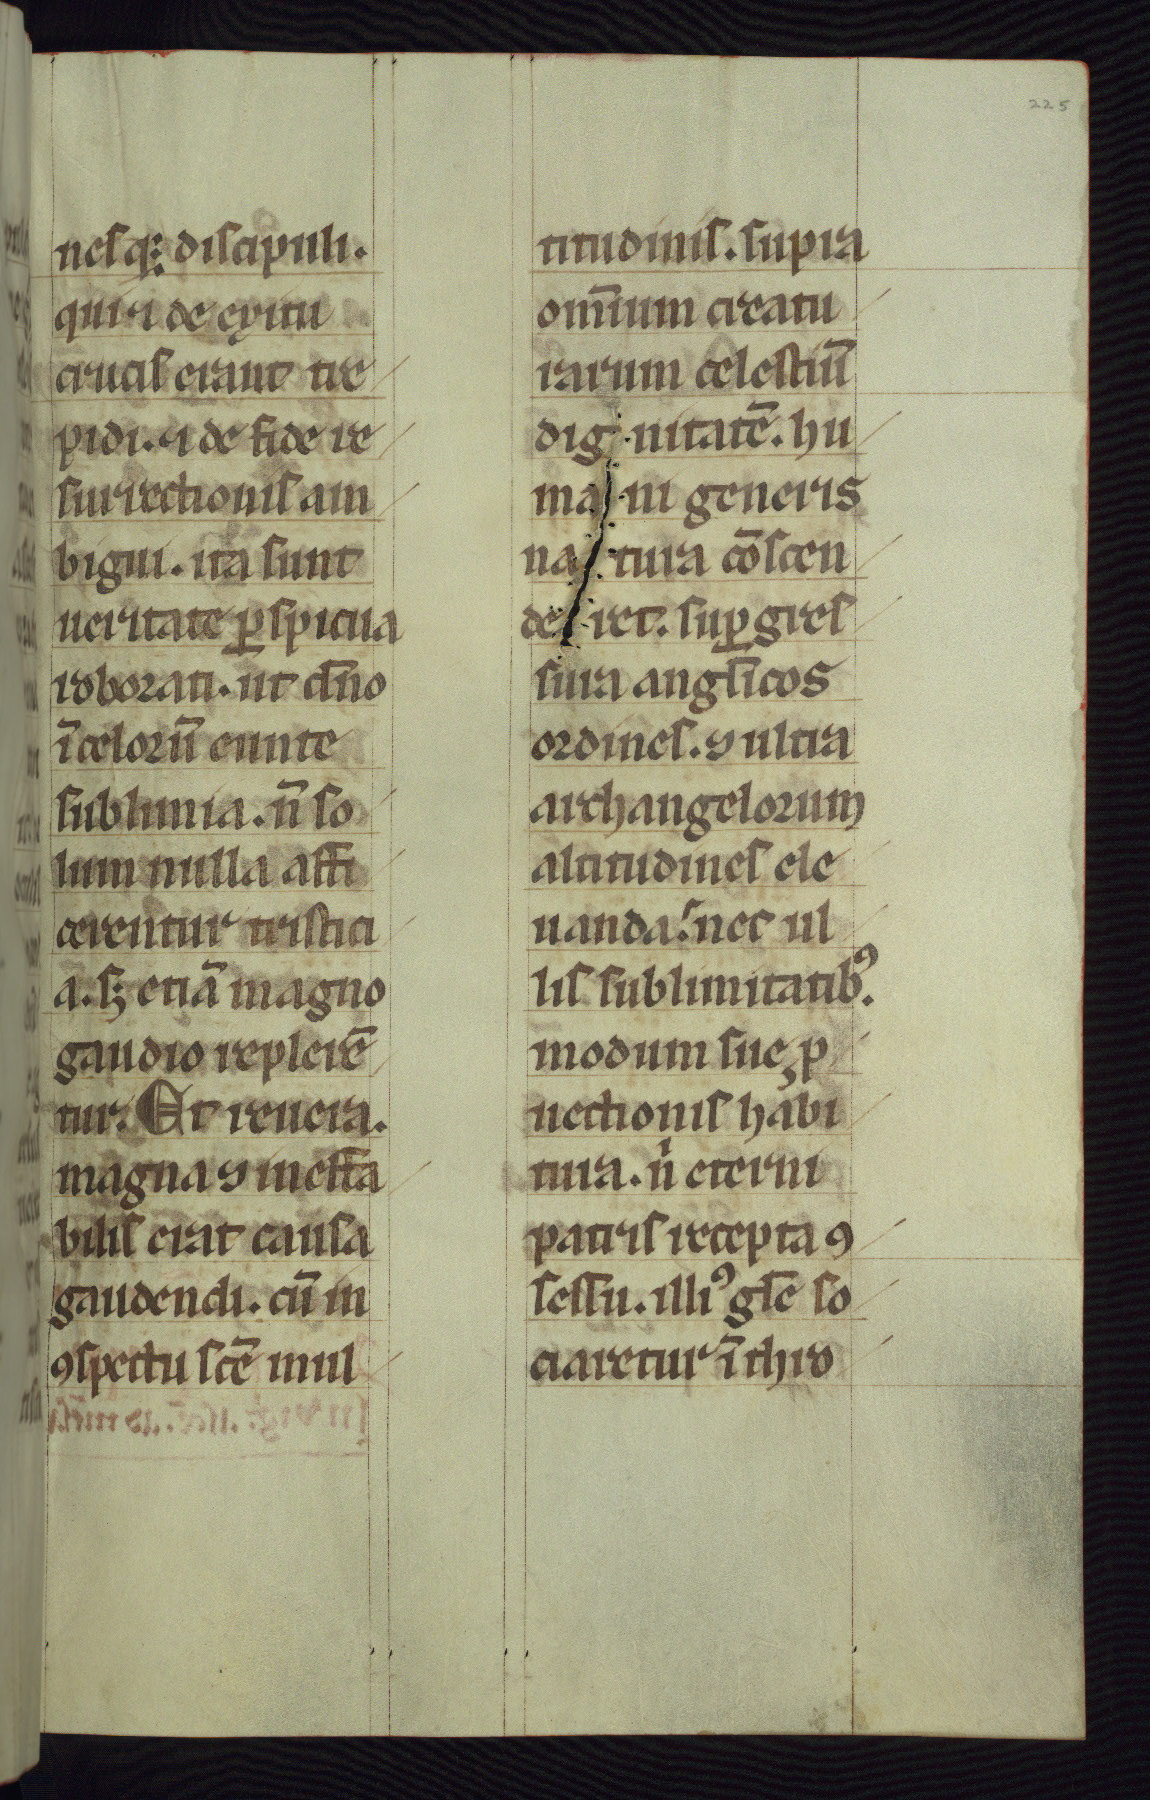 225
neſq; diſcipuli.
qui ⁊ de exitu
crucis erant tre
pidi. ⁊ de fide re
ſurrectionis am
bigui. ita ſunt
ueritate ꝑſpicua
roborati. ut dn̄o
ī celorū eunte
ſublimia. n̄ ſo
lum nulla affi
cerentur triſtici
a. ſꝫ etiā magno
gaudio replerē
tur. Et reuera.
magna ⁊ ineffa
bilis erat cauſa
gaudendi. cū in
ꝯſpectu ſcē mul
titudinis. ſupra
om̄ium creatu
rarum celeſtiū
dignitatē. hu
mani generis
natura cōſcen
deret. ſuꝑgreſ
ſura angl̄icos
ordines. ⁊ ultra
archangelorum
altitudines ele
uanda. nec ul
lis ſublimitatibꝰ.
modum ſue ꝓ
uectionis habi
tura. nͥ eterni
patris recepta ꝯ
ſeſſu. illiꝰ gl̄e ſo
ciaretur ī thro